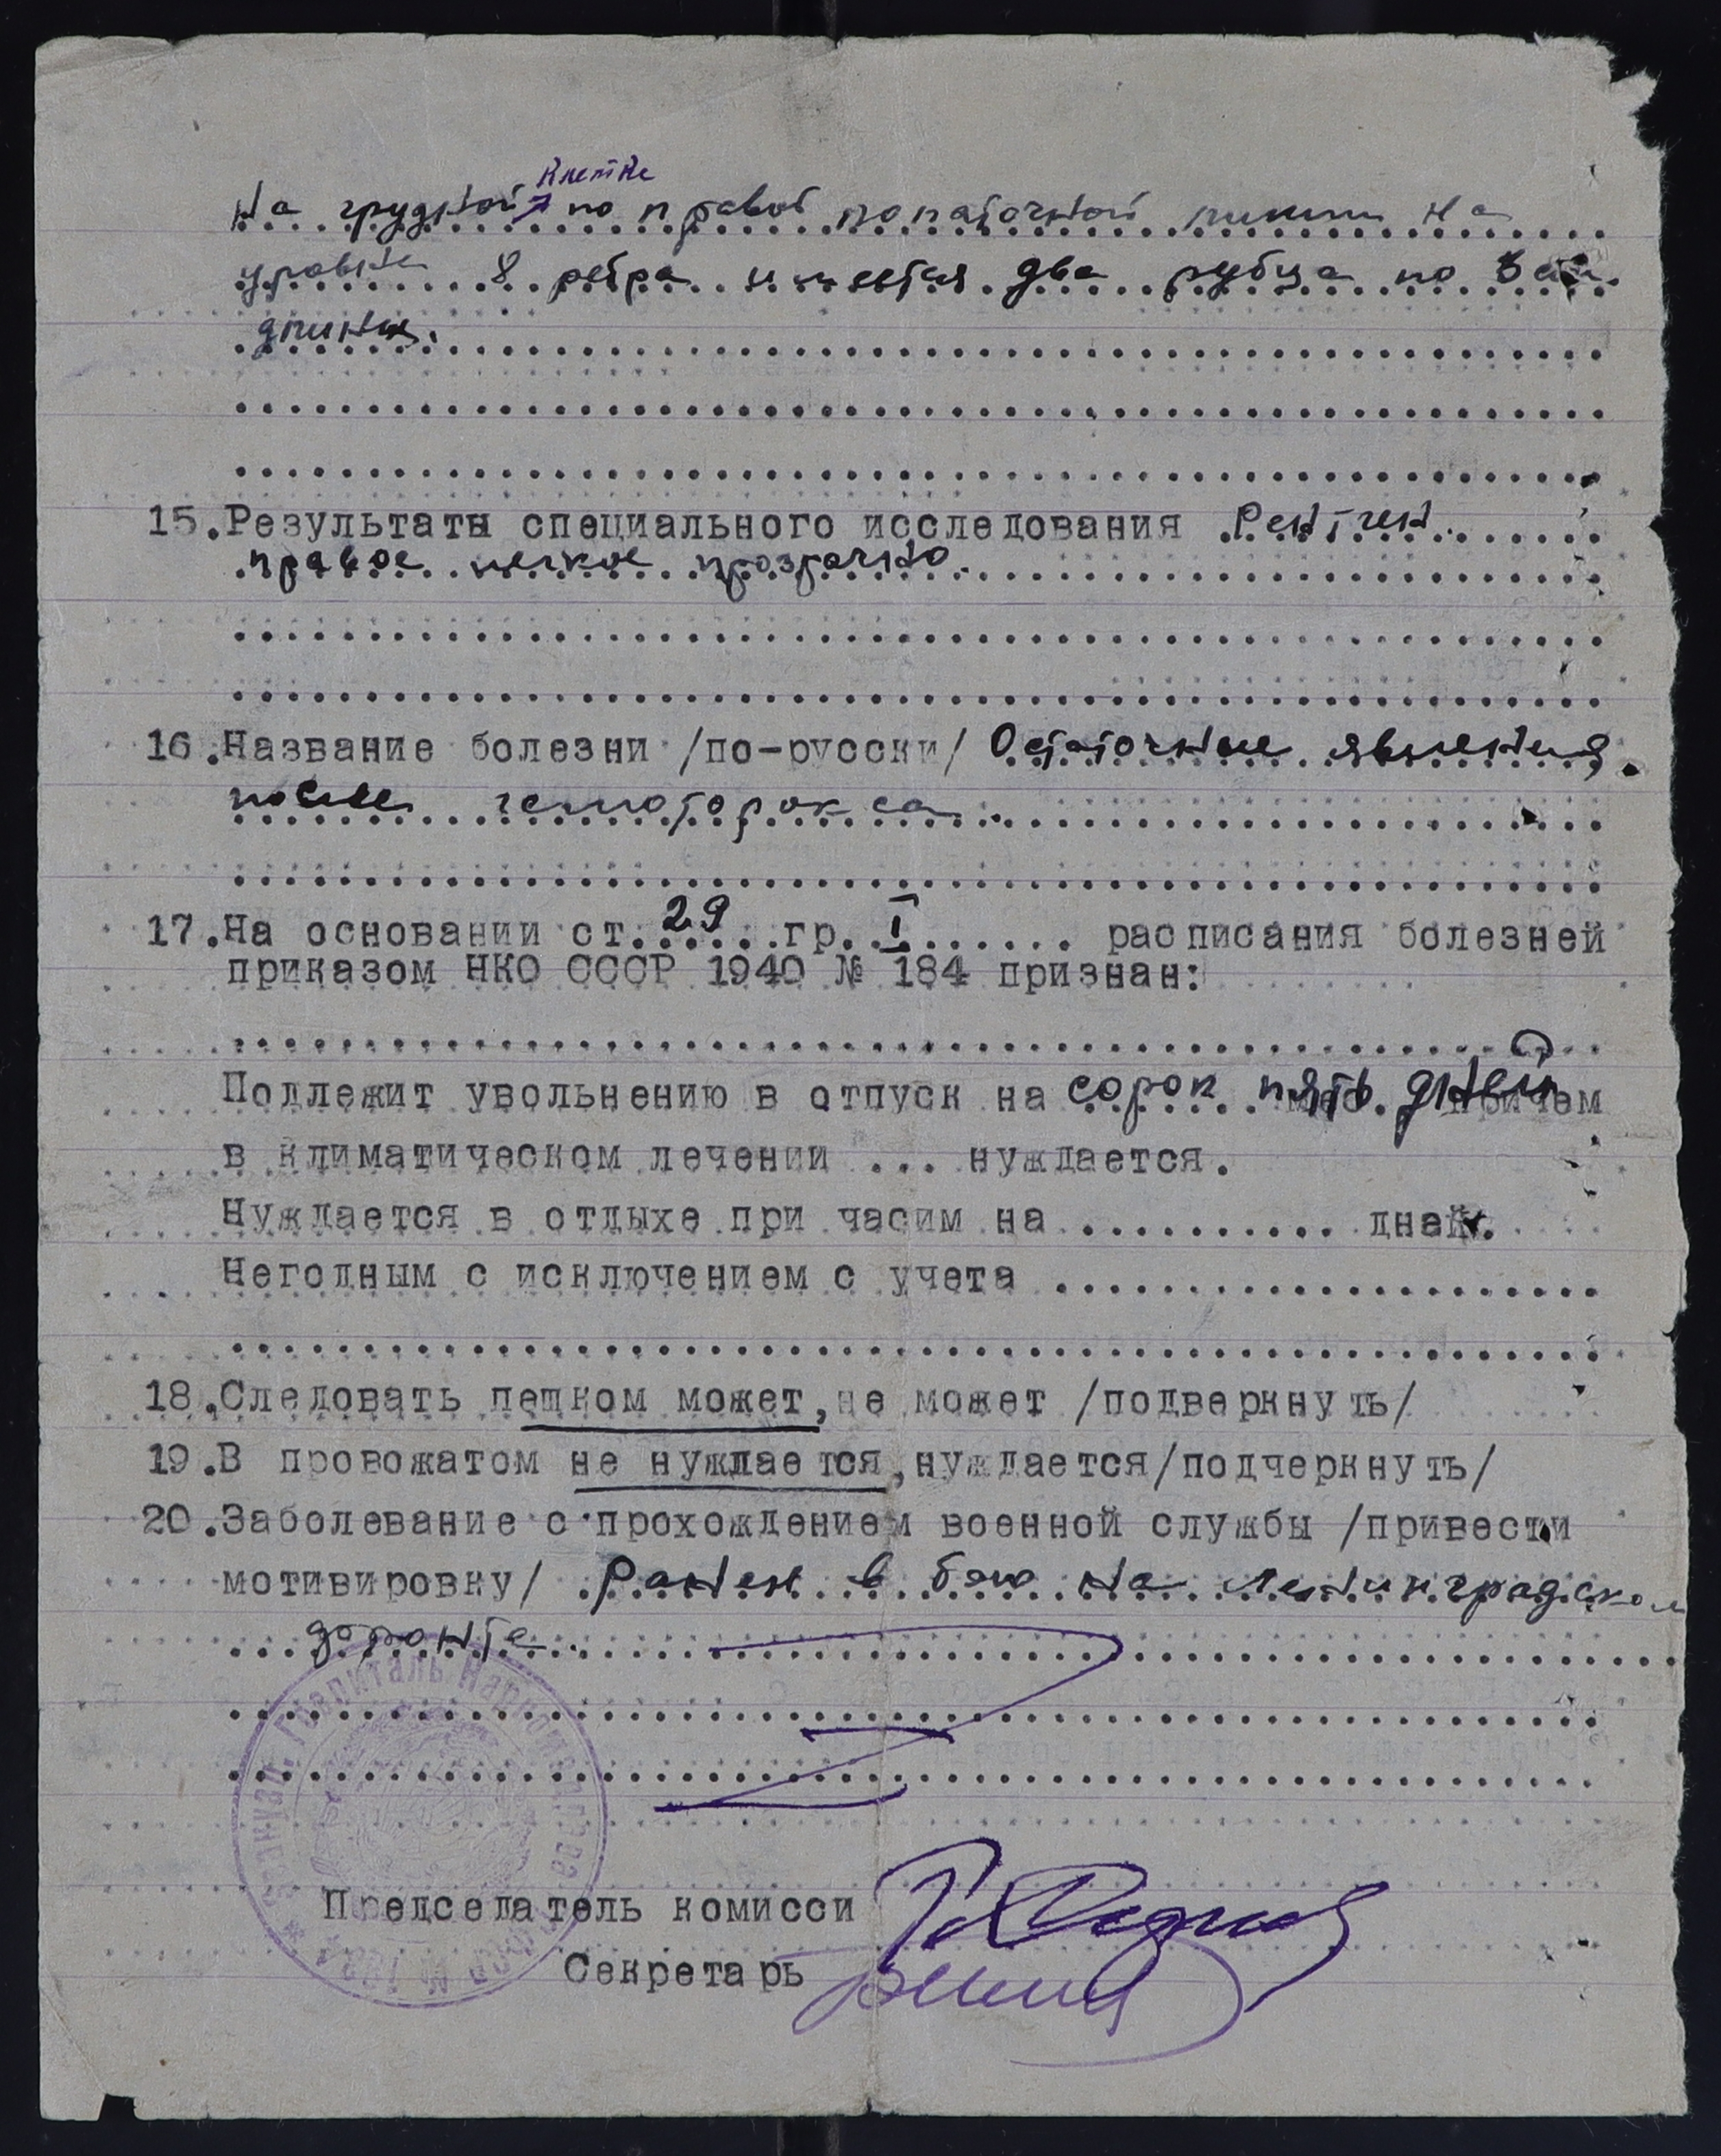 клетке
На грудной по правой лопаточной линии на
уровне 8 ребра имеется два рубца по 3 см.
длины.
15. Результаты специального исследования Рентген.
правое легкое прозрачно.
16. Название болезни /по-русски/ Остаточные явления
после гемоторокса.
17. На основании ст. 29 гр. I расписания болезней
приказом НКО СССР 1940 № 184 признан:
Подлежит увольнению в отпуск на сорок пять дней причем
в климатическом лечении ... нуждается.
Нуждается в отдыхе при часим на ........... дней.
Негодным с исключением с учета
18. Следовать пешком может, не может /подверкнуть/
19. В провожатом не нуждается, нуждается/подчеркнуть/
20. Заболевание с прохождением военной службы /привести
мотивировку/ Ранен в бою на Ленинградском
фронте.
Госпиталь Нар
Председатель комисси
Секретарь